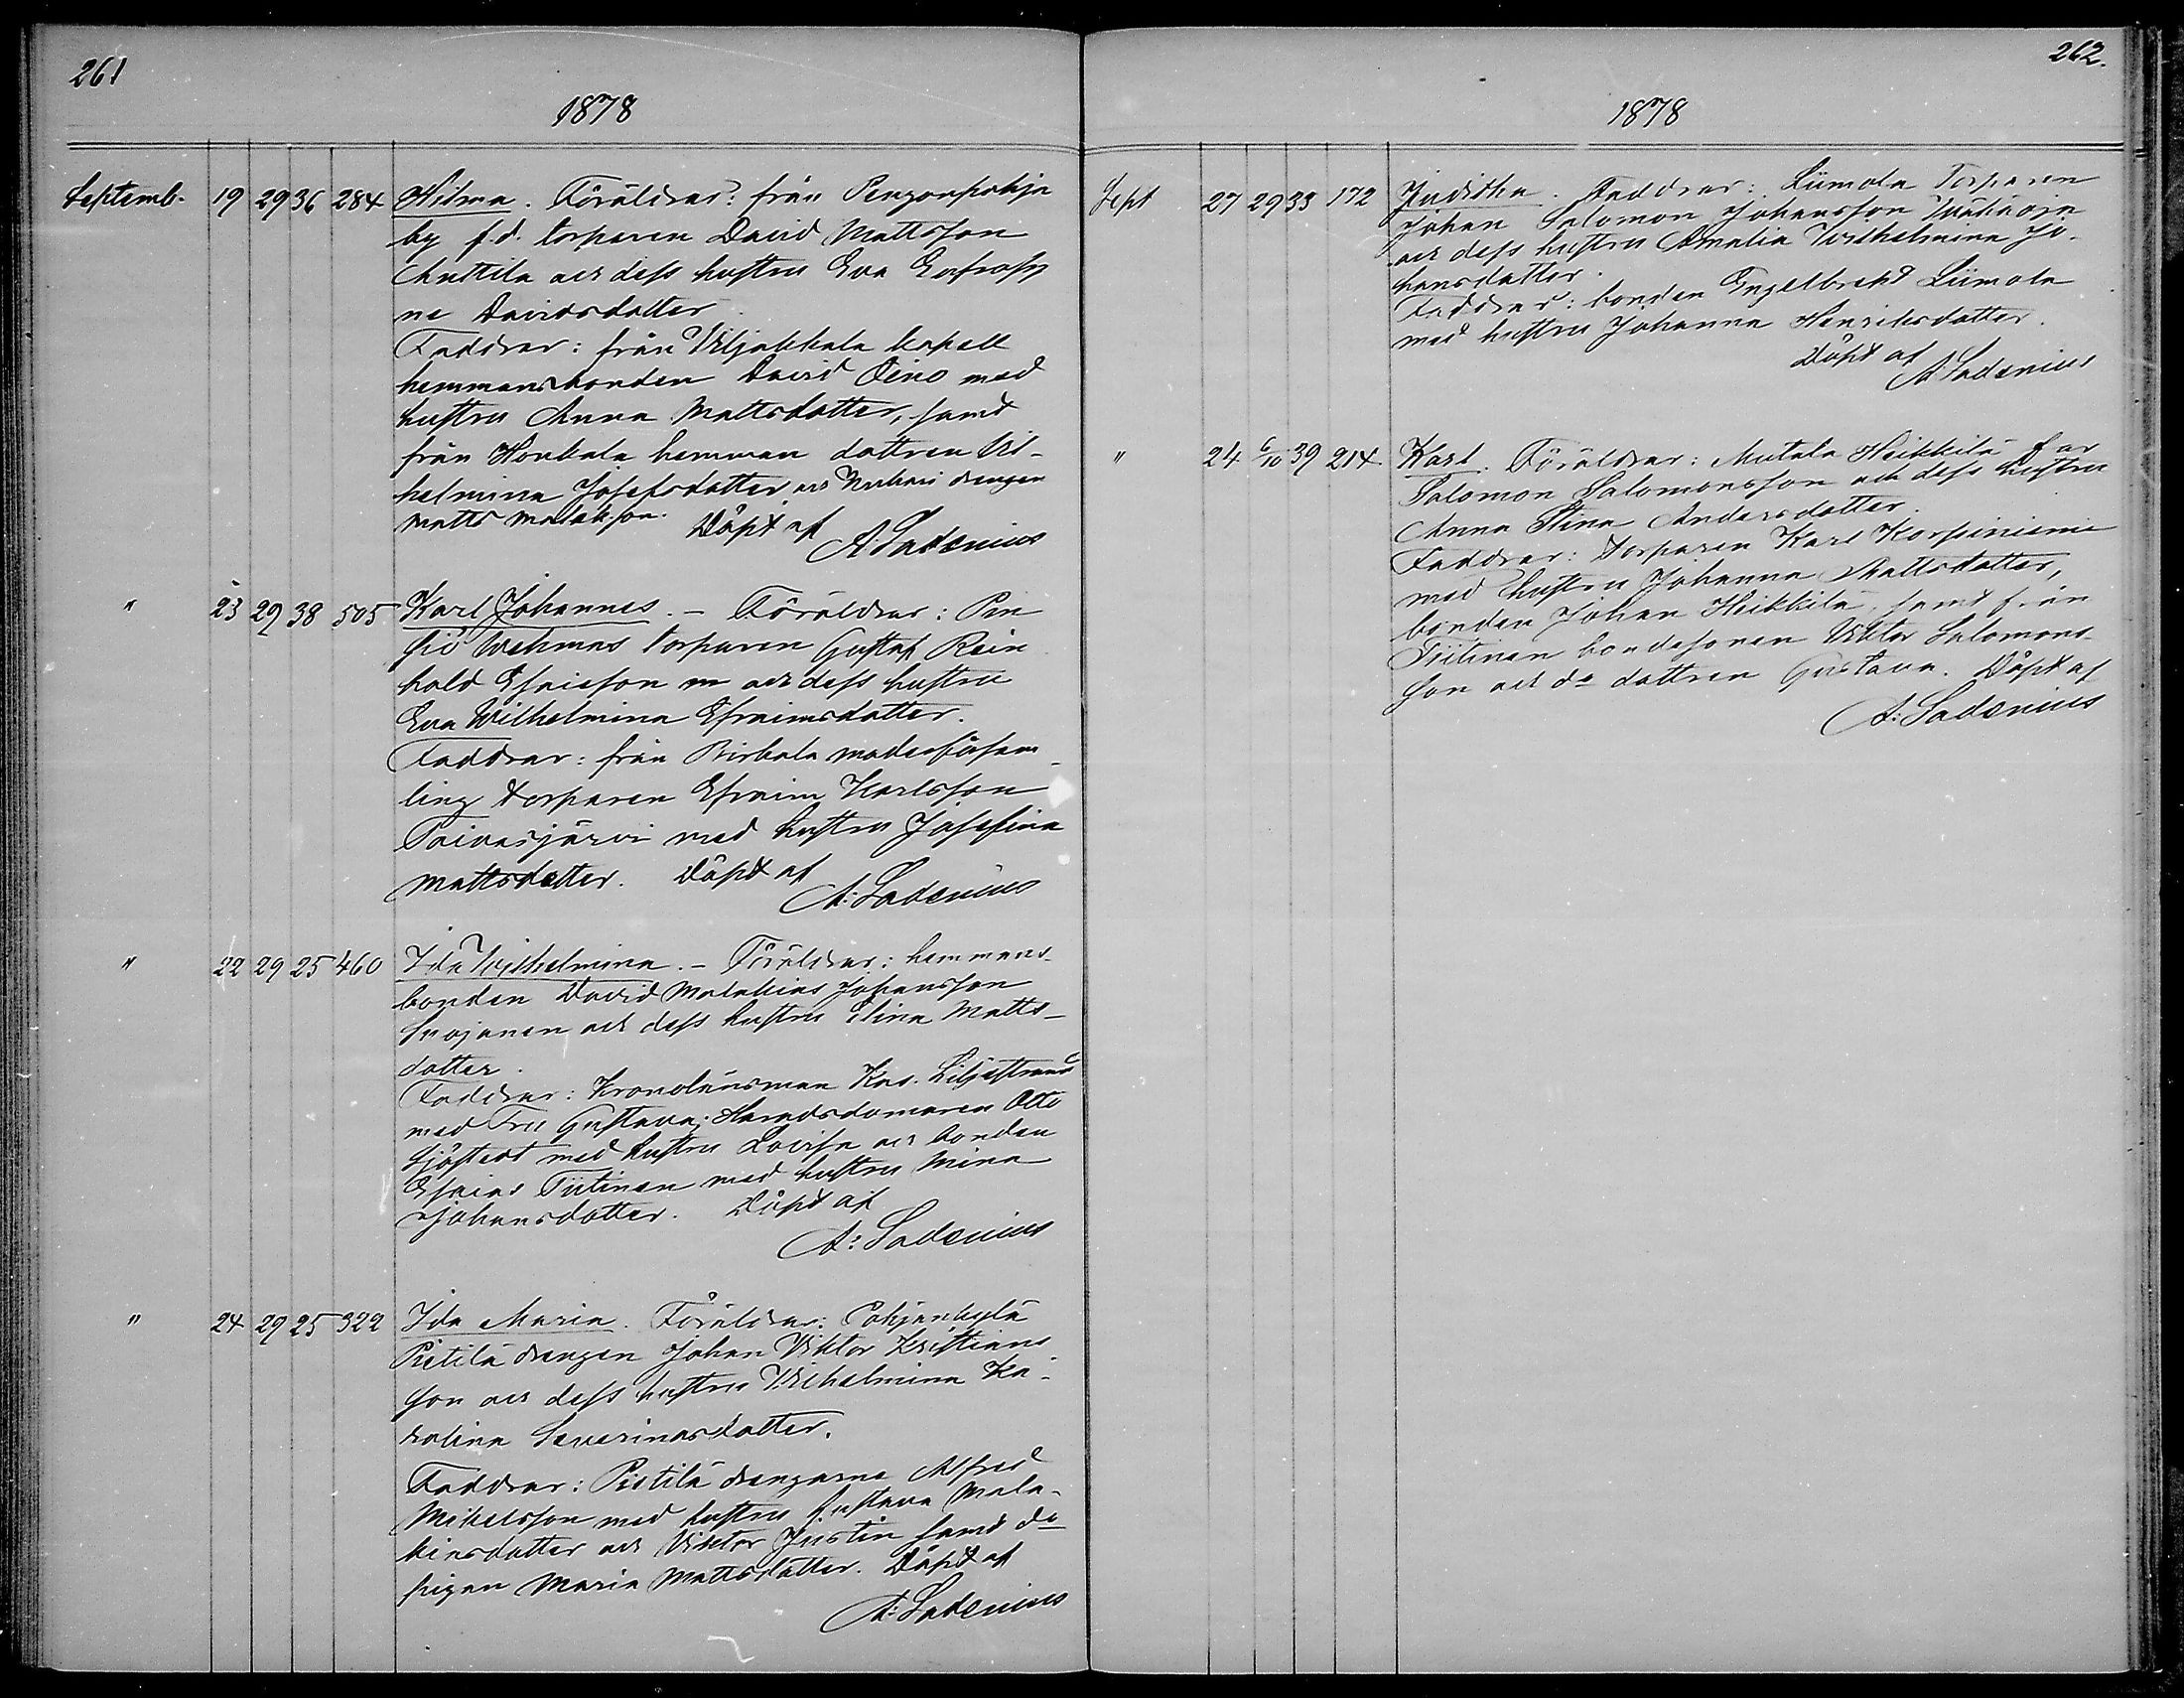 261
1878
Septemb. 19 29 36 284 Hilma. Föräldrar: från Pengonpohja
by f.d. torparen David Mattsson
Anttila och dess hustru Eva Eufrosy
ne Davidsdotter
Faddrar: från Viljakkala kapell
hemmansbonden David Oino med
hustru Anna Mattsdotter, samt
från Honkala hemman dottren Vil-
helmina Josefsdotter och drengen
Matts Malaksson. Döpt af
A. Ladenius
" 23 29 38 505 Karl Johannes. - Föräldrar: Pin
siö Wehmas torparen Gustaf Rein
hold Esaiesson och dess hustru
Eva Wilhelmina Efraimsdotter.
Faddrar: från Birkala moderförsam
ling torparen Efraim Karlsson
Taivasjärvi med hustru Josefina
Mattsdotter. Döpt af
A. Ladenius
" 22 29 25 460 Ida Wilhelmina. - Föräldrar: hemmans-
bonden David Malakias Johansson
Suojanen och dess hustru Stina Matts-
dotter.
Faddrar: Kronolänsman Kas. Liljestrand
med Fru Gustava; Haradsdomaren Otto
Sjöstedt med hustru Lovisa och bonden
Esaias Tiitinen med hustru Mina
Johansdotter. Döpt af
A: Ladenius
" 24 29 25 322 Ida Maria. Föräldrar: Pohjankylä
Pietilä drengen Johan Viktor Kristians
son och dess hustru Vilhelmina Ka-
rolina Severinasdotter.
Faddrar: Pietilä drengarne Alfred
Mikelsson med hustru Gustava Mala-
kiasdotter och Viktor Justin samt do
pigan Maria Mattsdotter. Döpt af
A: Ladenius
262.
1878
Sept 27 29 33 172 Juditha. Faddrar: Liimola Torparen
Johan Salomon Johansson
och dess hustru Amalia Wilhelmina Jo-
hansdotter.
Faddrar: bonden Engelbrekt Liimola
med hustru Johanna Henriksdotter.
Döpt af
A Ladenius
" 24 6/10 39 214 Karl. Föräldrar: Mutala Heikkilä
Salomon Salomonsson och dess hustru
Anna Stina Andersdotter.
Faddrar: torparen Karl Korpiniemi
med hustru Johanna Mattsdotter,
bonden Johan Heikkilä, samt från
Tiitinen bondesonen Viktor Salomons-
son och do dottren Gustava. Döpt af
A: Ladenius